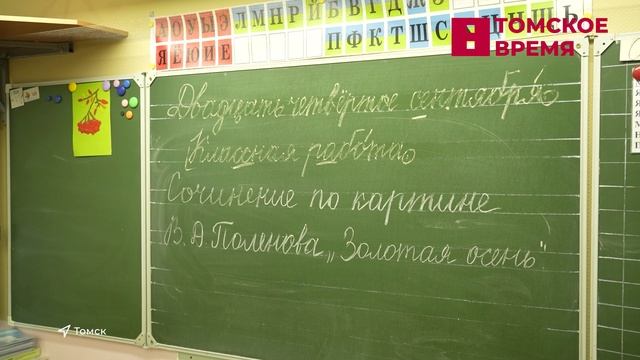 А О У Ы Э Л М Н Р Й Б В Г Д Ж З
Я Ё Ю И Е П Ф К Т Ш С
ТОМСКОЕ
ВРЕМЯ
Двадцать четвёртое сентября.
Классная работа.
Сочинение по картине
В. Д. Поленова „Золотая осень"
Томск